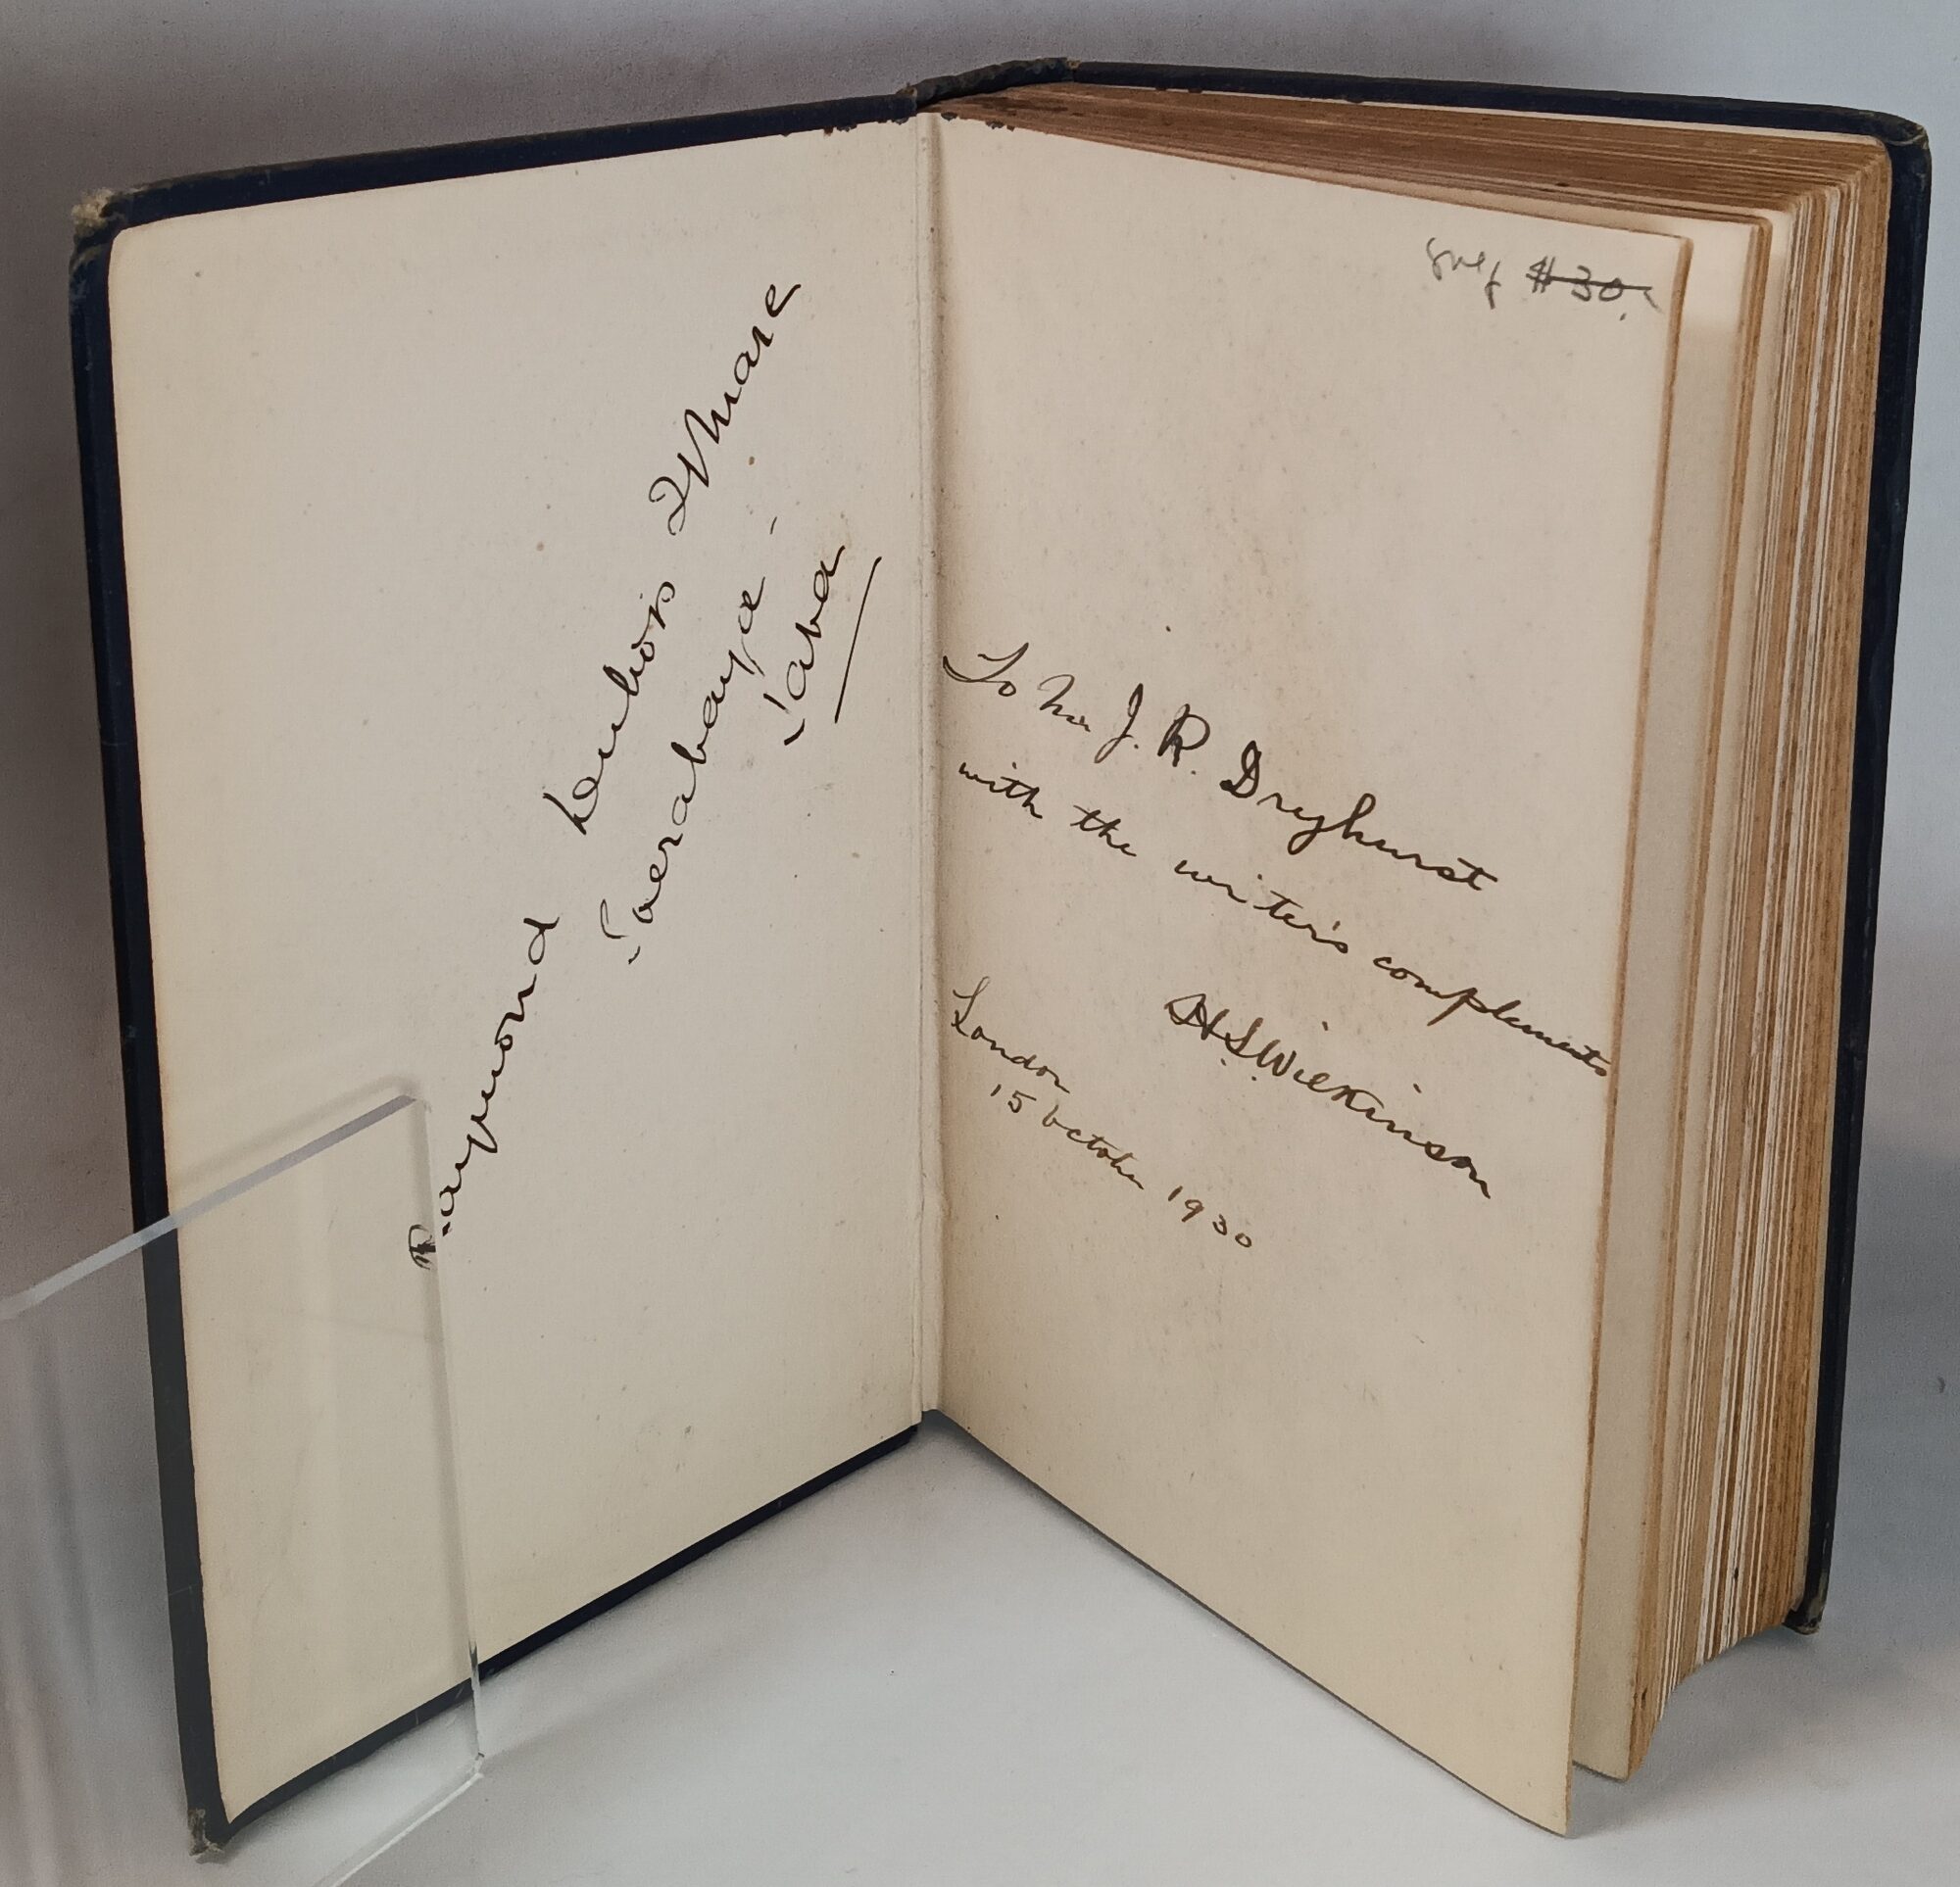 Raymond
Soerabaya -
Java
$30.
To Mr J. R. Dreyhurst
with the writer's compliments
H.S. Wilkinson
London
15 October 1930